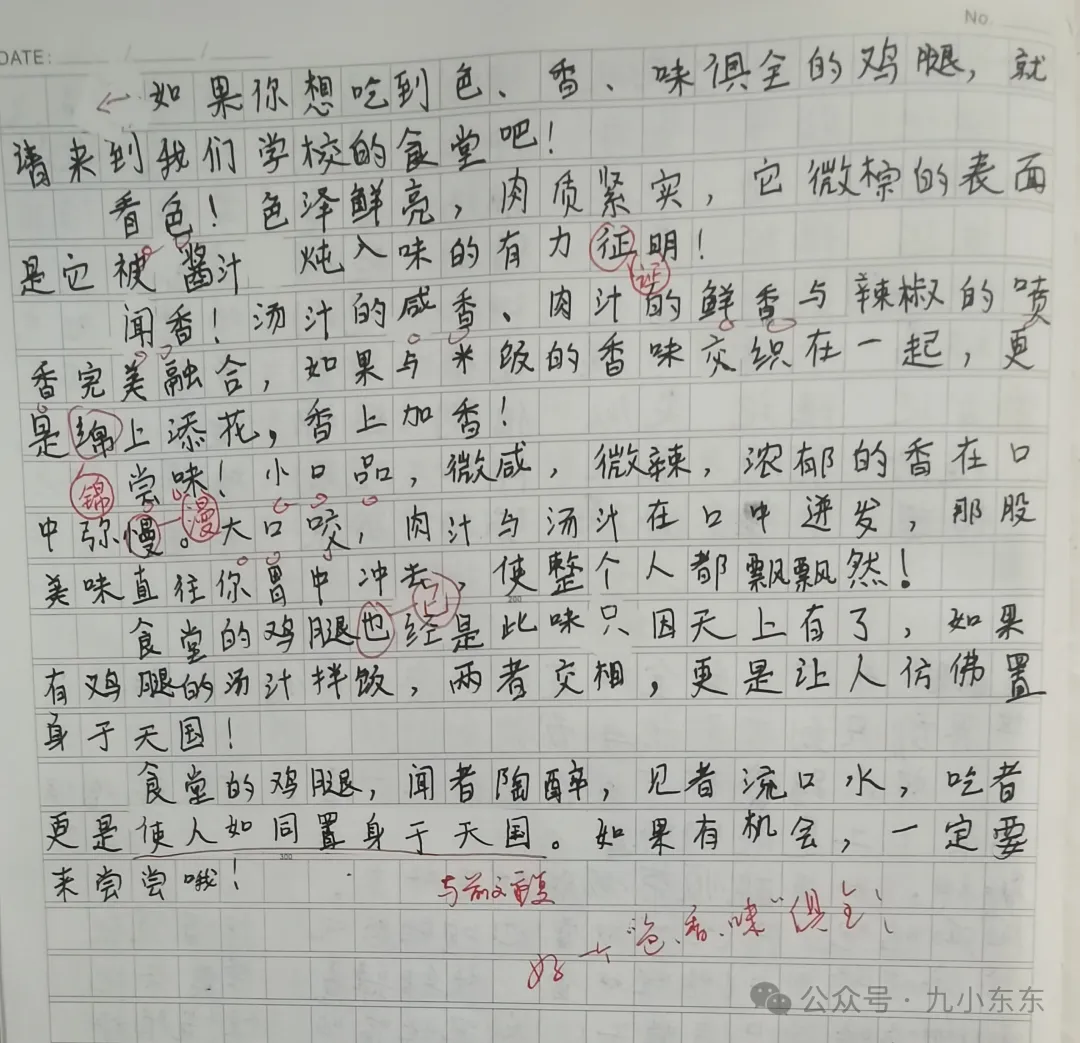 No.
DATE: / /
← 如果你想吃到色、香、味俱全的鸡腿，就
请来到我们学校的食堂吧！
看色！色泽鲜亮，肉质紧实，它微棕的表面
是它被酱汁 炖入味的有力征明！
证
闻香！汤汁的咸香、肉汁的鲜香与辣椒的喷
香完美融合，如果与米饭的香味交织在一起，更
是绵上添花，香上加香！
锦 尝味！小口品，微咸，微辣，浓郁的香在口
中弥慢。大口咬，肉汁与汤汁在口中迸发，那股
漫
美味直往你胃中冲去，使整个人都飘飘然！
已
食堂的鸡腿也经是此味只因天上有了，如果
200
有鸡腿的汤汁拌饭，两者交相，更是让人仿佛置
身于天国！
食堂的鸡腿，闻者陶醉，见者流口水，吃者
更是使人如同置身于天国。如果有机会，一定要
300
来尝尝哦！
与前文重复
好一个"色、香、味"俱全！
公众号·九小东东